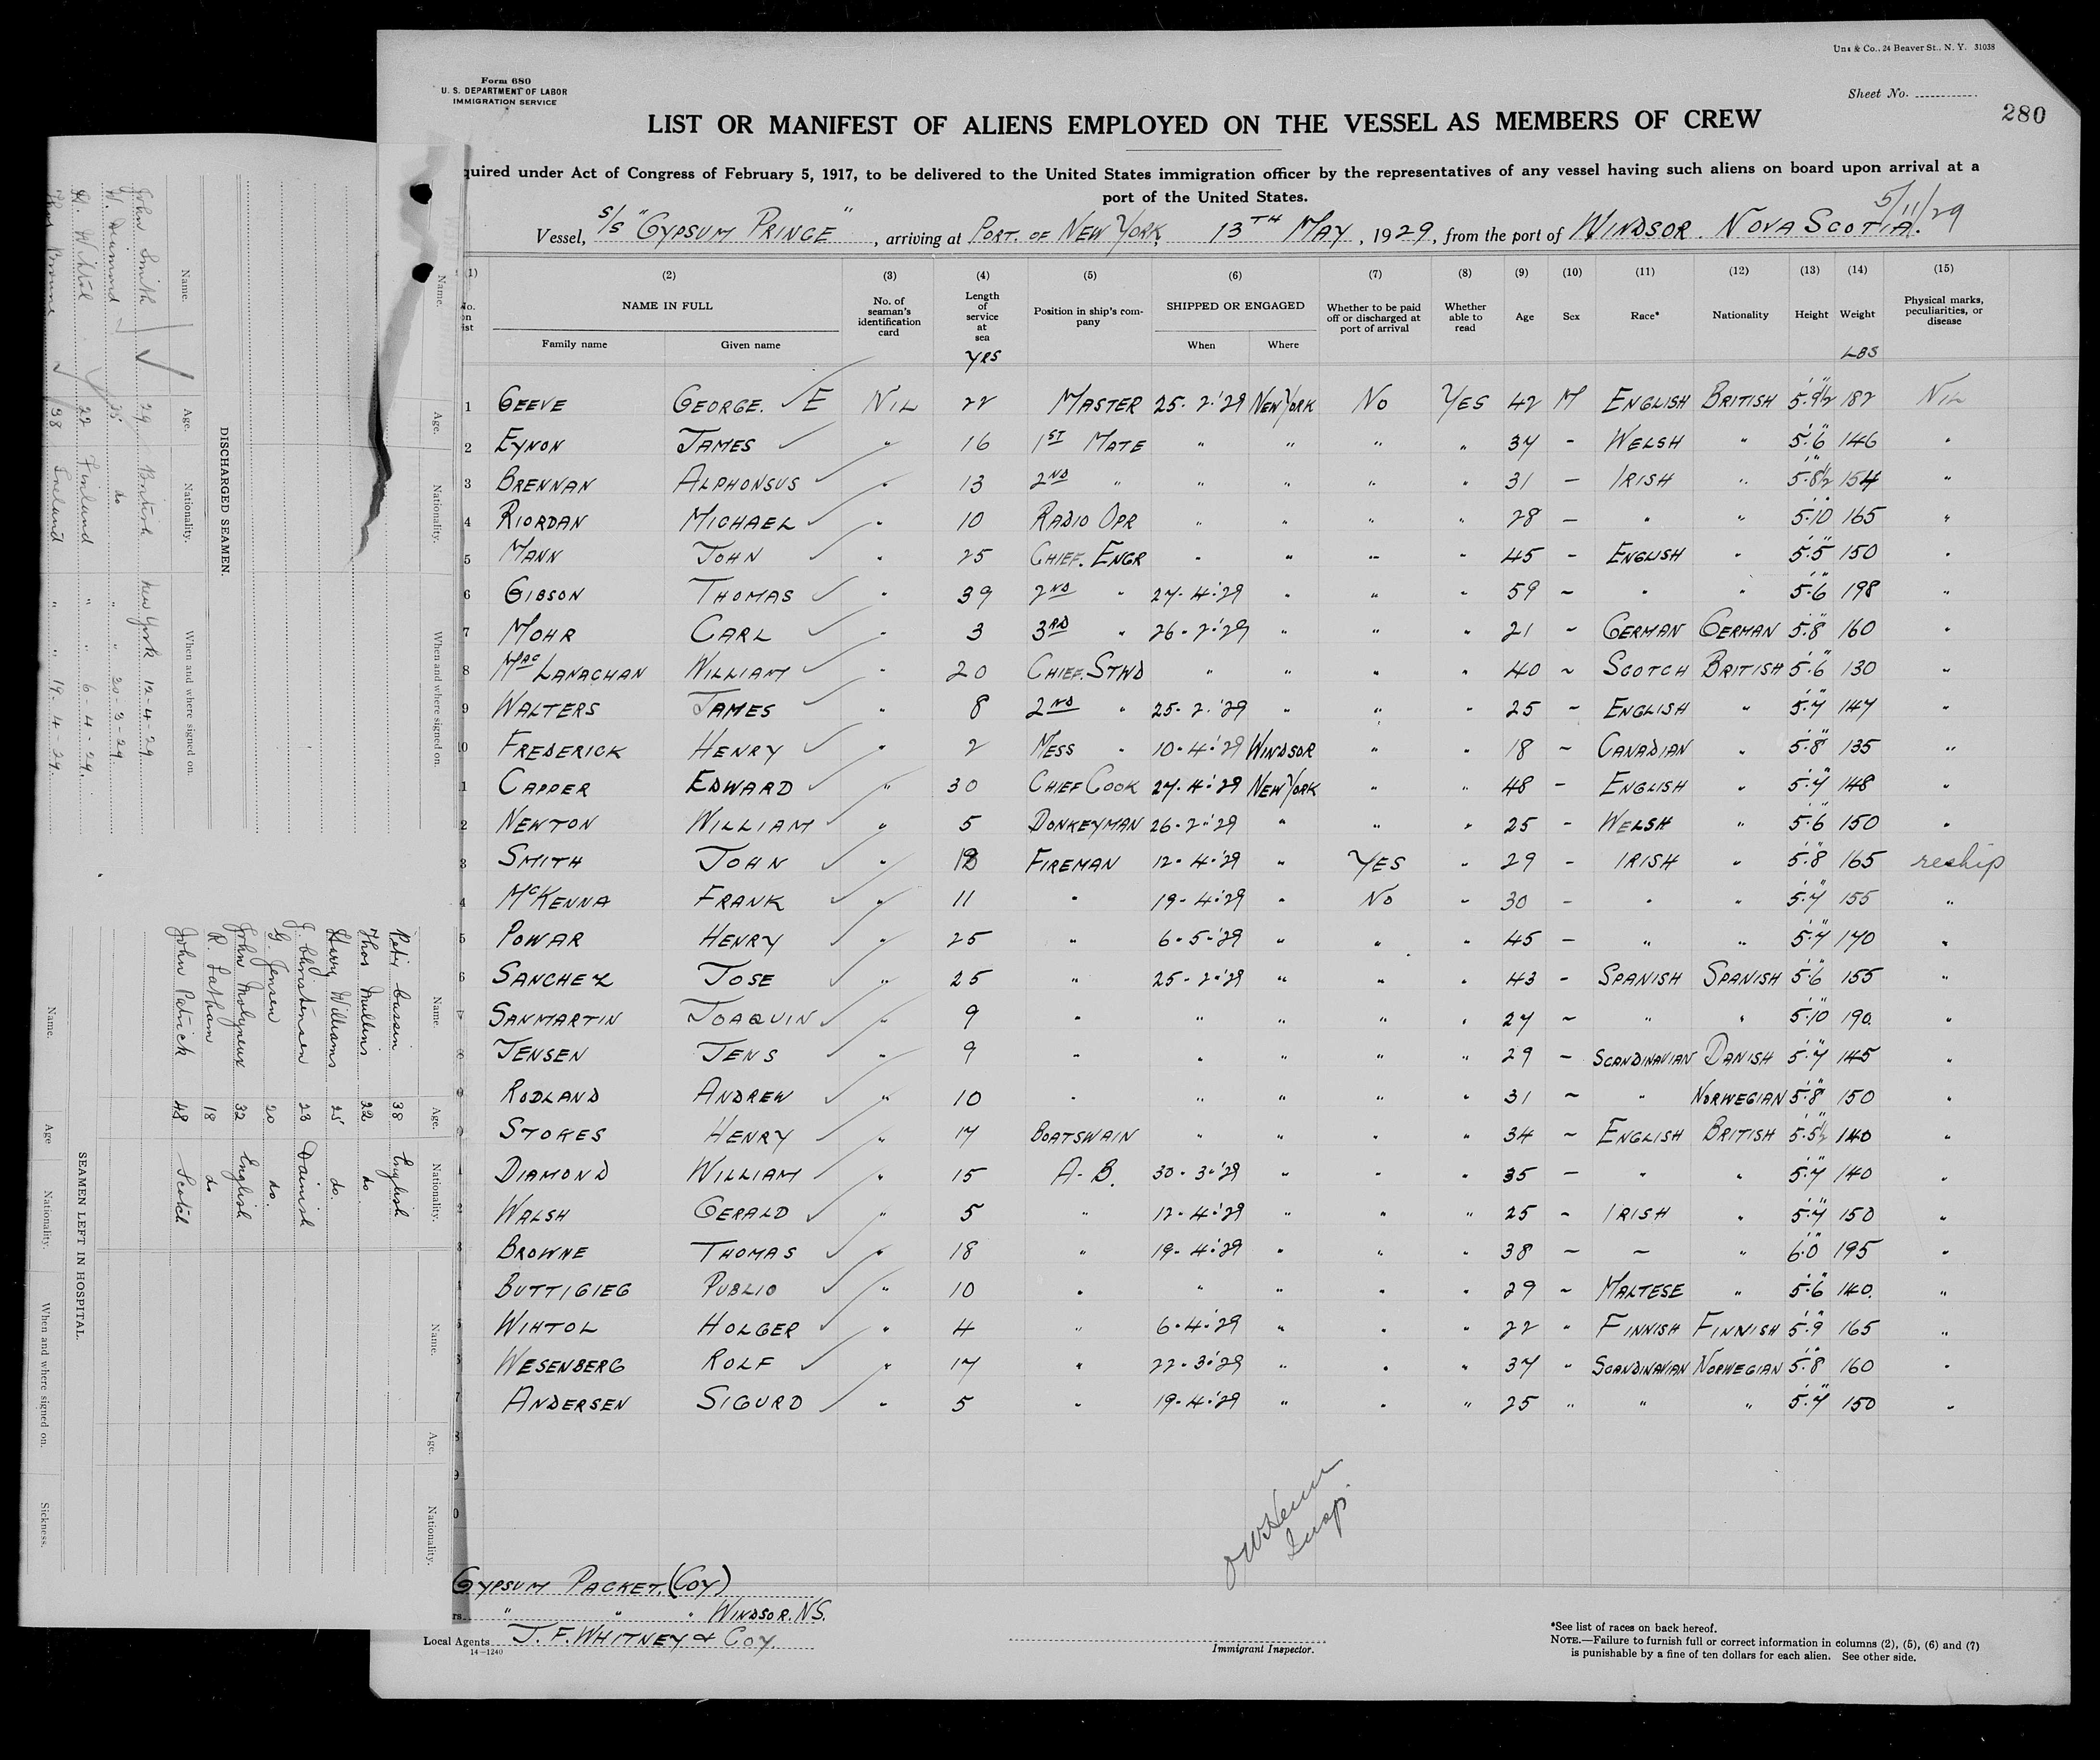 Form 680
U. S. DEPARTMENT OF LABOR
IMMIGRATION SERVICE
& Co., 24 Beaver St., N. Y. 31038
Sheet No.
280
LIST OR MANIFEST OF ALIENS EMPLOYED ON THE VESSEL AS MEMBERS OF CREW
quired under Act of Congress of February 5, 1917, to be delivered to the United States immigration officer by the representatives of any vessel having such aliens on board upon arrival at a
port of the United States.
5/11/29
Vessel, S/S "GYPSUM PRINCE", arriving at PORT. OF NEW YORK, 13TH MAY, 1929, from the port of WINDSOR. NOVA SCOTIA.
(1) (2) (3) (4) (5) (6) (7) (8) (9) (10) (11) (12) (13) (14) (15)
No. on list NAME IN FULL No. of seaman's identification card Length of service at sea Position in ship's company SHIPPED OR ENGAGED Whether to be paid off or discharged at port of arrival Whether able to read Age Sex Race* Nationality Height Weight Physical marks, peculiarities, or disease
Family name Given name When Where
YRS LBS
1 GEEVE GEORGE. E NIL 22 MASTER 25-2-'29 NEW YORK NO YES 42 M ENGLISH BRITISH 5'.9½" 182 NIL
2 EYNON JAMES " 16 1ST MATE " " " " 34 - WELSH " 5'.6" 146 "
3 BRENNAN ALPHONSUS " 13 2ND " " " " " 31 - IRISH " 5'.8½" 154 "
4 RIORDAN MICHAEL " 10 RADIO OPR " " " " 28 - " " 5'.10" 165 "
5 MANN JOHN " 25 CHIEF. ENGR " " " " 45 - ENGLISH " 5'.5" 150 "
6 GIBSON THOMAS " 39 2ND " 27-4-'29 " " " 59 - " " 5'.6" 198 "
7 MOHR CARL " 3 3RD " 26-2-'29 " " " 21 - GERMAN GERMAN 5'.8" 160 "
8 MACLANACHAN WILLIAM " 20 CHIEF. STWD " " " " 40 - SCOTCH BRITISH 5'.6" 130 "
9 WALTERS JAMES " 8 2ND " 25-2-'29 " " " 25 - ENGLISH " 5'.7" 147 "
10 FREDERICK HENRY " 2 MESS " 10-4-'29 WINDSOR " " 18 - CANADIAN " 5'.8" 135 "
1 CAPPER EDWARD " 30 CHIEF COOK 27-4-'29 NEW YORK " " 48 - ENGLISH " 5'.7" 148 "
2 NEWTON WILLIAM " 5 DONKEYMAN 26-2-'29 " " " 25 - WELSH " 5'.6" 150 "
3 SMITH JOHN " 18 FIREMAN 12-4-'29 " YES " 29 - IRISH " 5'.8" 165 reship
4 McKENNA FRANK " 11 " 19-4-'29 " NO " 30 - " " 5'.7" 155 "
5 POWAR HENRY " 25 " 6-5-'29 " " " 45 - " " 5'.7" 170 "
6 SANCHEZ JOSE " 25 " 25-2-'29 " " " 43 - SPANISH SPANISH 5'.6" 155 "
7 SANMARTIN JOAQUIN " 9 " " " " " 27 - " " 5'.10" 190. "
8 JENSEN JENS " 9 " " " " " 29 - SCANDINAVIAN DANISH 5'.7" 145 "
9 RODLAND ANDREW " 10 " " " " " 31 - " NORWEGIAN 5'.8" 150 "
0 STOKES HENRY " 17 BOATSWAIN " " " " 34 - ENGLISH BRITISH 5'.5½" 140 "
1 DIAMOND WILLIAM " 15 A-B. 30-3-'29 " " " 35 - " " 5'.7" 140 "
2 WALSH GERALD " 5 " 12-4-'29 " " " 25 - IRISH " 5'.7" 150 "
3 BROWNE THOMAS " 18 " 19-4-'29 " " " 38 - - " 6'.0" 195 "
4 BUTTIGIEG PUBLIO " 10 " " " " " 29 - MALTESE " 5'.6" 140. "
5 WIHTOL HOLGER " 4 " 6-4-'29 " " " 22 " FINNISH FINNISH 5'.9" 165 "
6 WESENBERG ROLF " 17 " 22-3-'29 " " " 37 " SCANDINAVIAN NORWEGIAN 5'.8" 160 "
7 ANDERSEN SIGURD " 5 " 19-4-'29 " " " 25 " " " 5'.7" 150 "
8
9
0
Insp.
GYPSUM PACKET. (COY)
rs. " " " WINDSOR. NS.
Local Agents J. F. WHITNEY & COY.
14-1240
Immigrant Inspector.
*See list of races on back hereof.
NOTE.—Failure to furnish full or correct information in columns (2), (5), (6) and (7)
is punishable by a fine of ten dollars for each alien. See other side.
DISCHARGED SEAMEN.
Name. Age. Nationality. When and where signed on.
Name. Age. Nationality. When and where signed on.
John Smith 29 British New York 12-4-29
W. Diamond 35 do " 20-3-29
H. Wihtol 22 Finland " " 6-4-29.
Thos Browne 38 Ireland " " 19-4-29.
SEAMEN LEFT IN HOSPITAL.
Name. Age Nationality. When and where signed on. Sickness.
Name. Age. Nationality. Name. Age. Nationality.
Peter 38 English
Thos Mullins 22 do
Harry Williams 25 do.
J. Christensen 23 Dainish
G. Jensen 20 do.
John Molyneux 32 English
R. Latham 18 do
John Patrick 48 Scotch